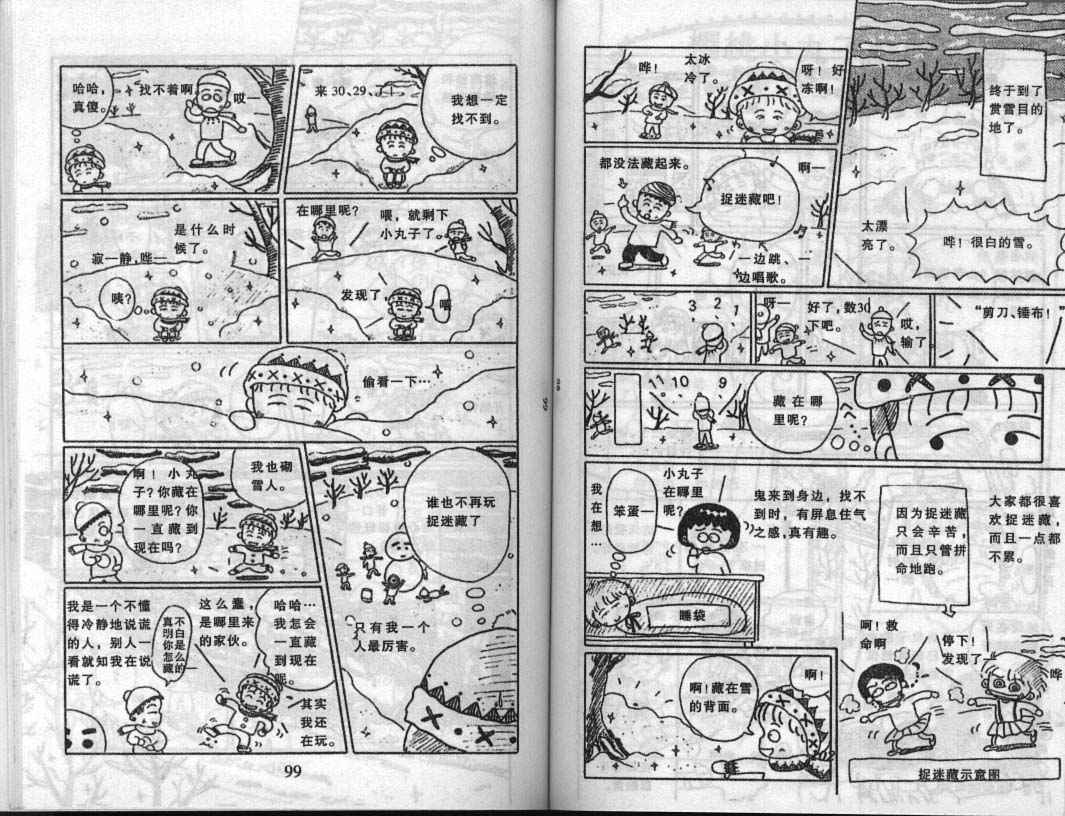 终于到了
赏雪目的
地了。
哗！很白的雪。
太漂
亮了。
呀！好
冻啊！
太冰
冷了。
哗！
啊—
捉迷藏吧！
都没法藏起来。
一边跳、一
边唱歌。
“剪刀、锤布！”
哎，
输了。
好了，数30
下吧。
呀—
1
2
3
藏在哪
里呢？
9
10
11
大家都很喜
欢捉迷藏，
而且一点都
不累。
因为捉迷藏
只会辛苦，
而且只管拼
命地跑。
停下！
发现了
哗
呵！救
命啊
捉迷藏示意图
鬼来到身边，找不
到时，有屏息住气
之感，真有趣。
小丸子
在哪里
呢？
笨蛋—
我
在
想
…
睡袋
啊！
啊！藏在雪
的背面。
我想一定
找不到。
来 30、29、了
找不着啊
哎—
哈哈，
真傻。
喂，就剩下
小丸子了。
在哪里呢？
发现了，
喂
是什么时
候了。
寂—静，哗—
咦？
偷看一下…
谁也不再玩
捉迷藏了
只有我一个
人最厉害。
我也砌
雪人。
啊！小丸
子？你藏在
哪里呢？你
一直藏到
现在吗？
哈哈…
我怎会
一直藏
到现在
呢。
其实
我还
在玩。
这么蠢，
是哪里来
的家伙。
真不
明白
你是
怎么
藏的
我是一个不懂
得冷静地说谎
的人，别人一
看就知我在说
谎了。
99